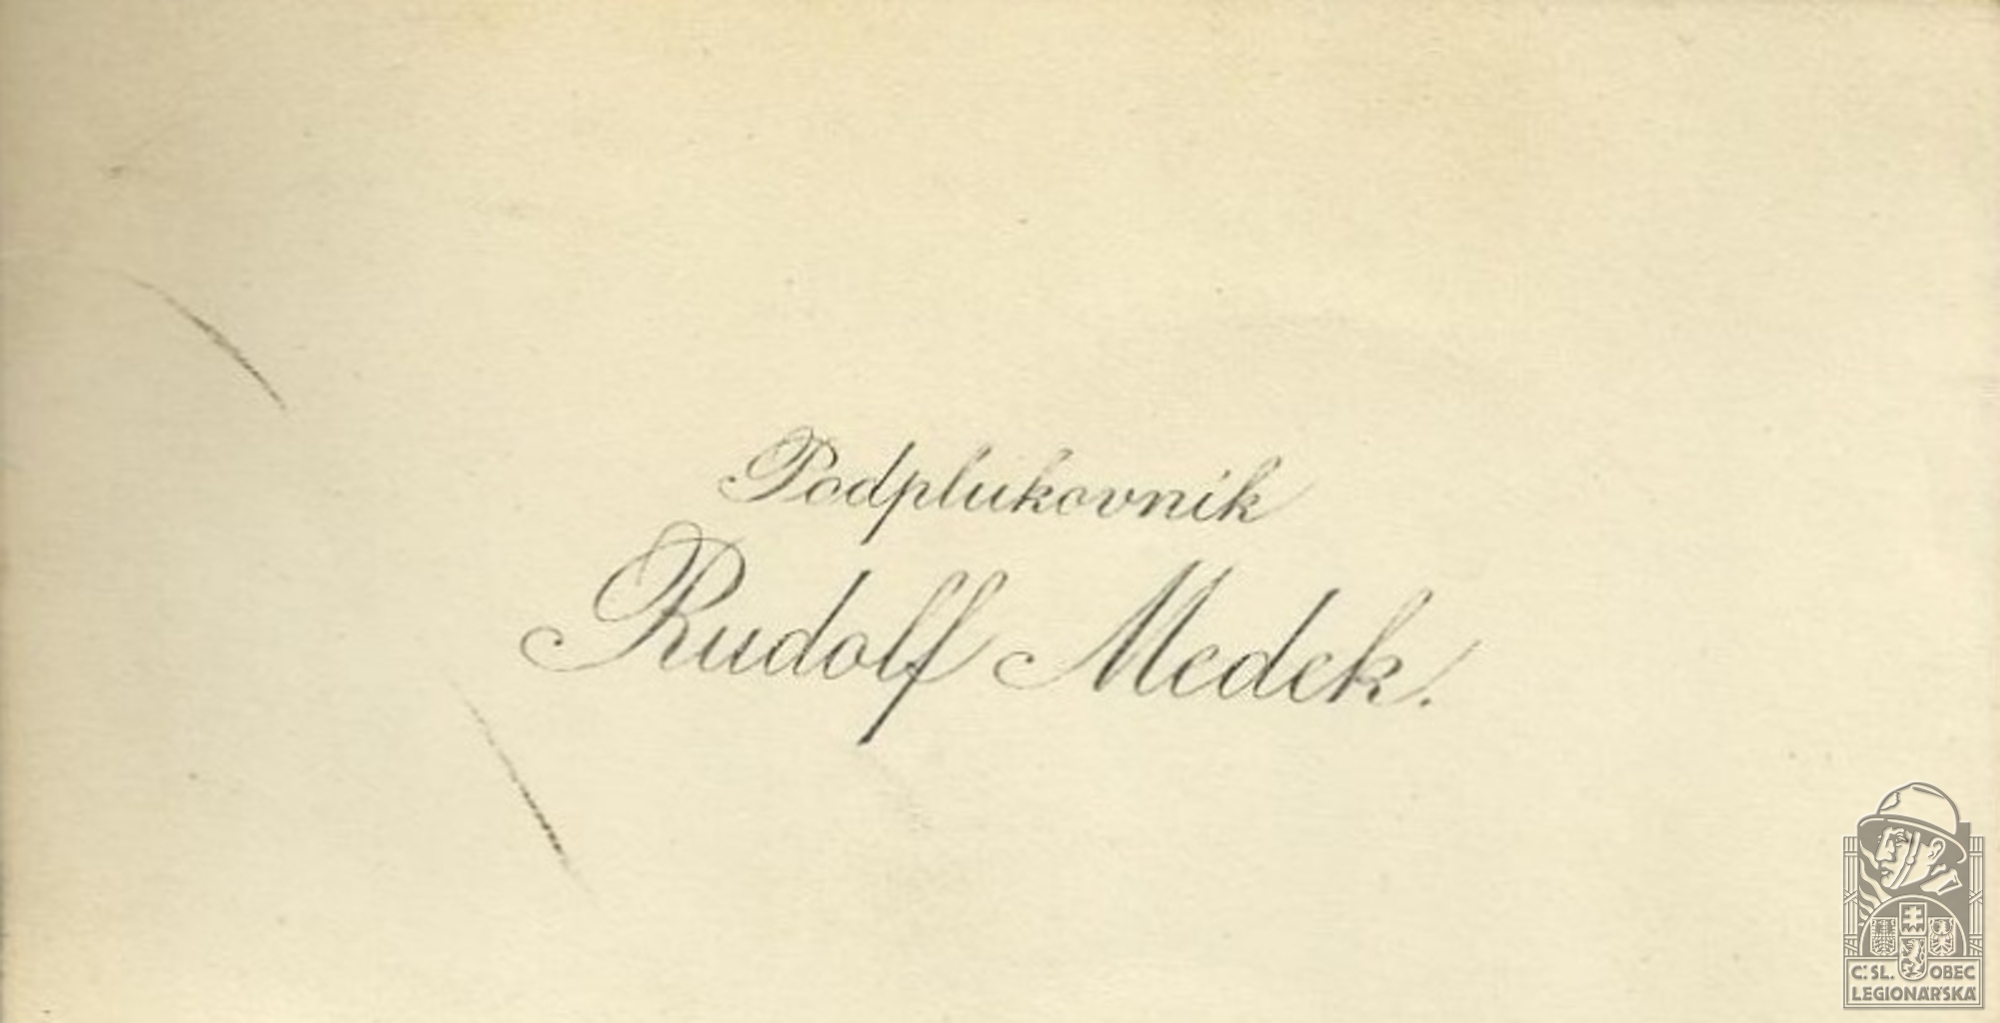 Podplukovník
Rudolf Medek.
Č.SL. OBEC
LEGIONÁŘSKÁ